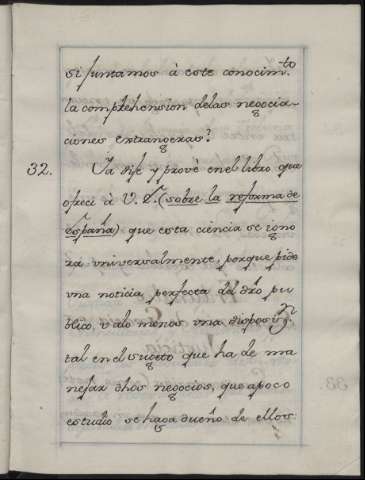 si juntamos à este conocim.to
la comprehension de las negocia-
ciones extrangeras?
32. Ya dije y provè en el libro que
ofreci à V. S. (sobre la reforma de
España) que esta ciencia se igno
ra universalmente, porque pide
una noticia perfecta del dro pu
blico, u alo menos una disposi.on
tal en el sugeto que ha de ma
nejar dhos negocios, que apoco
estudio se haga dueño de ellos: